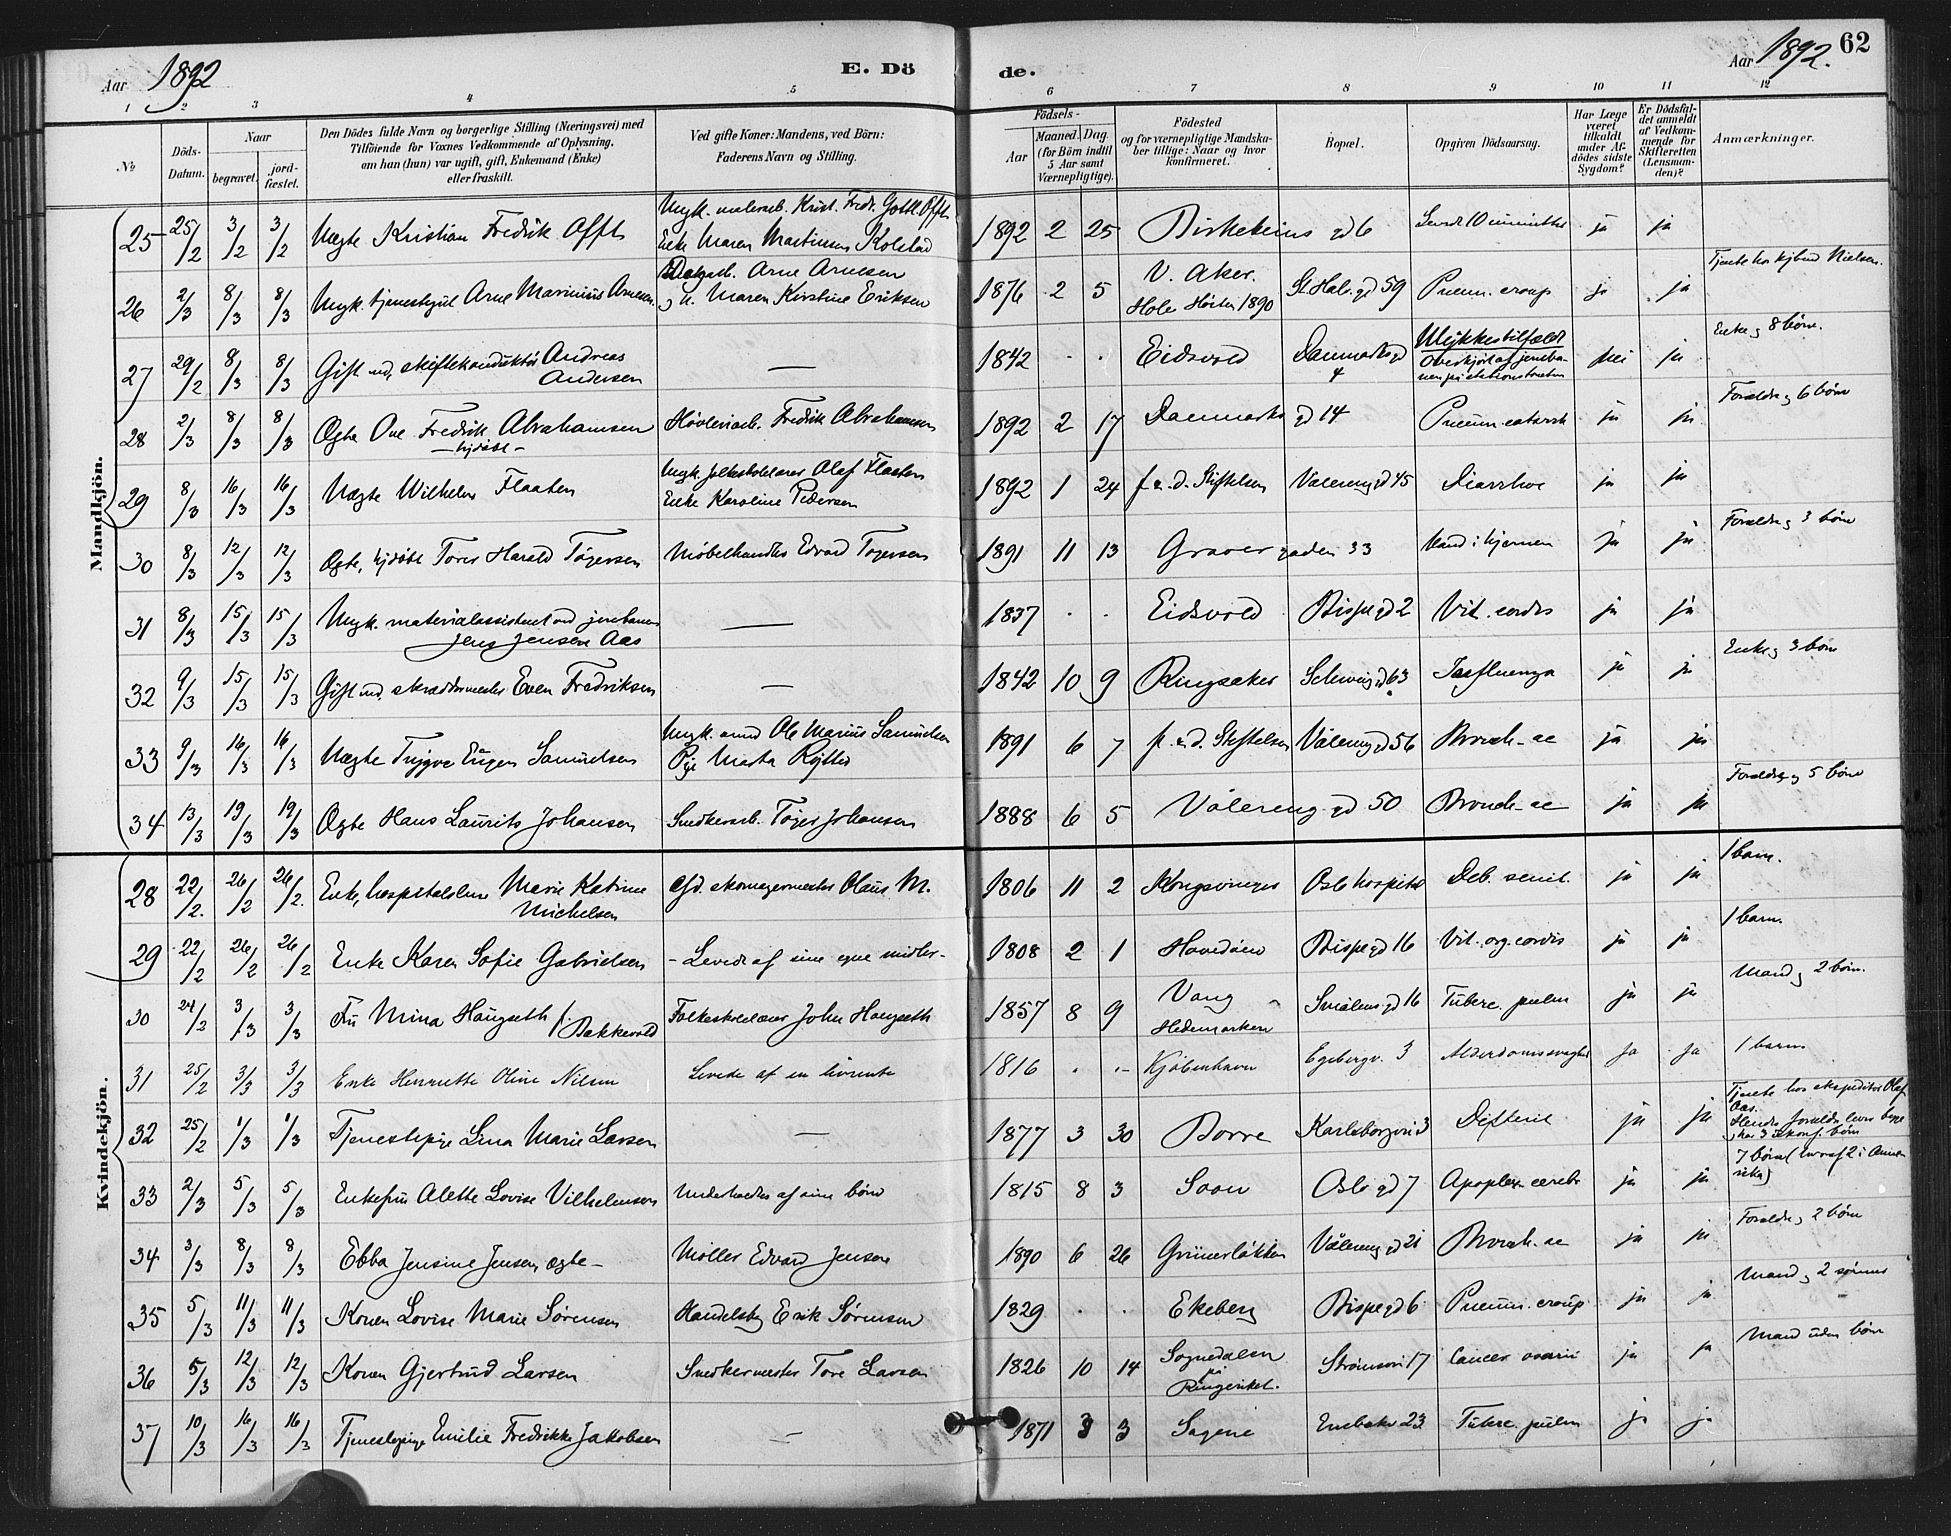 Aar 1892 E. Dö de. Aar 1892. 62
1 2 3 4 5 6 7 8 9 10 11 12
№ Döds-Datum. Naar begravet. jord-fæstet. Den Dödes fulde Navn og borgerlige Stilling (Næringsvei) med Tilföiende for Voxnes Vedkommende af Oplysning, om han (hun) var ugift, gift, Enkemand (Enke) eller fraskilt. Ved gifte Koner: Mandens, ved Börn: Faderens Navn og Stilling. Födsels- Aar Maaned. Dag. (for Börn indtil 5 Aar samt Værnepligtige). Födested og for værnepligtige Mandska-ber tillige: Naar og hvor konfirmeret. Bopæl. Opgiven Dödsaarsag. Har Læge været tilkaldt under Af-dödes sidste Sygdom? Er Dödsfal-det anmeldt af Vedkom-mende for Skifteretten (Lensman-den)? Anmærkninger.
Mandkjön.
25 25/2 3/2 3/2 Uægte Kristian Fredrik Offt Ungk. malerarb. Krist. Fredr. Gottl. Offt Enke Maren Martinsen Kolstad 1892 2 25 gd 6 ja ja
26 2/3 8/3 8/3 Ungk. tjenestegut Arne Marinius Arnesen Arne Arnesen og h. Maren Kirstine Eriksen 1876 2 5 V. Aker. Hole Høsten 1890 St. Halv. gd 59 Pneum. croup ja ja Tjente hos kjbmd Nielsen.
27 29/2 8/3 8/3 Gift md, skiftekonduktør Andreas Andersen — 1842 . . Eidsvold Danmarks gd 4 Ulykkestilfælde Overkjørt af jernba-nen på stationstomten nei ja Enke og 8 børn.
28 2/3 8/3 8/3 Ægte Ove Fredrik Abrahamsen – hjdøbt – Høvleriarb. Fredrik Abrahamsen 1892 2 17 Danmarks gd 14 Pneum. catarrh ja ja Forældre og 6 børn
29 8/3 16/3 16/3 Uægte Wilhelm Flaaten Ungk. folkeskolelærer Olaf Flaaten Enke Karoline Pedersen 1892 1 24 f. a. d. Stiftelsen Vålereng gd 45 Diarrhoe ja ja
30 8/3 12/3 12/3 Ægte, hjdøbt Tores Harald Tøgersen Møbelhandler Edvard Tøgersen 1891 11 13 Graver gaden 33 Vand i hjernen ja ja Forældre og 3 børn
31 8/3 15/3 15/3 Ungk. materialassistent ved jernbanen Jens Jensen Aas — 1837 . . Eidsvold Bispe gd 2 Vit. cordis ja ja
32 9/3 15/3 15/3 Gift md, skræddermester Even Fredriksen — 1842 10 9 Ringsaker Schweig gd 63 Influenza ja ja Enke og 3 børn
33 9/3 16/3 16/3 Uægte Trygve Eugen Samuelsen Ungk. Ole Marius Samuelsen Pige Marta 1891 6 7 f. a. d. Stiftelsen Vålereng gd 56 Bronch. ac ja ja
34 13/3 19/3 19/3 Ægte Hans Laurits Johansen Snedkerarb. Tøger Johansen 1888 6 5 Vålereng gd 50 Bronch. ac ja ja Forældre og 5 børn
Kvindekjön.
28 22/2. 26/2 26/2. Enke, hospitalslem Marie Katrine Michelsen Afd. skomagermester Olaus M. 1806 11 2 Kongsvinger Oslo hospital Deb. senil. ja ja 1 barn.
29 22/2 26/2 26/2 Enke Karen Sofie Gabrielsen – Levede af sine egne midler – 1808 2 1 Hovedøen Bispe gd 16 Vit. org. cordis ja ja 1 barn.
30 24/2 3/3 3/3 Fru Mina Haugseth f. Bakkevold Folkeskolelærer John Haugseth 1857 8 9 Vang Hedemarken Smålens gd 16 Tuberc. pulm ja ja Mand og 2 børn.
31 25/2 3/3 3/3 Enke Henriette Oline Nilsen Levede af en livrente 1816 . . – Kjøbenhavn Egebergv. 3 Alderdomssvaghed Ja Ja 1 barn
32 25/2 1/3 1/3 Tjenestepige Lina Marie Larsen — 1877 3 30 Borre Karlsborgvei 3 Difterit ja ja Tjente hos ekspeditør Olaf Aas. Hendes forældre lever begge og har 3 ukonf. børn
33 2/3 5/3 5/3 Enkefru Alette Lovise Vilhelmsen Underholdtes af sine børn 1815 8 3 Soon Oslo gd 7 Apoplex. cerebr ja ja 7 børn (hvoraf 2 i Amerika)
34 3/3 8/3 8/3 Ebba Jensine Jensen, ægte – Møller Edvard Jensen 1890 6 26 Grünerløkken Vålereng gd 21 Bronch. ac ja ja Forældre og 2 børn
35 5/3 11/3 11/3 Konen Lovise Marie Sørensen Handelsbg Erik Sørensen 1829 . . Ekeberg Bispe gd 6 Pneum. croup ja ja Mand og 2 sønner
36 5/3 12/3 12/3 Konen Gjertrud Larsen Snedkermester Tore Larsen 1826 10 14 Sognedalen på Ringeriket. Strømsvei 17 Cancer ovarii ja ja Mand uden børn
37 10/3 16/3 16/3 Tjenestepige Emilie Fredrikke Jakobsen — 1871 3 3 Sagene Enebakv 23 Tuberc. pulm ja ja